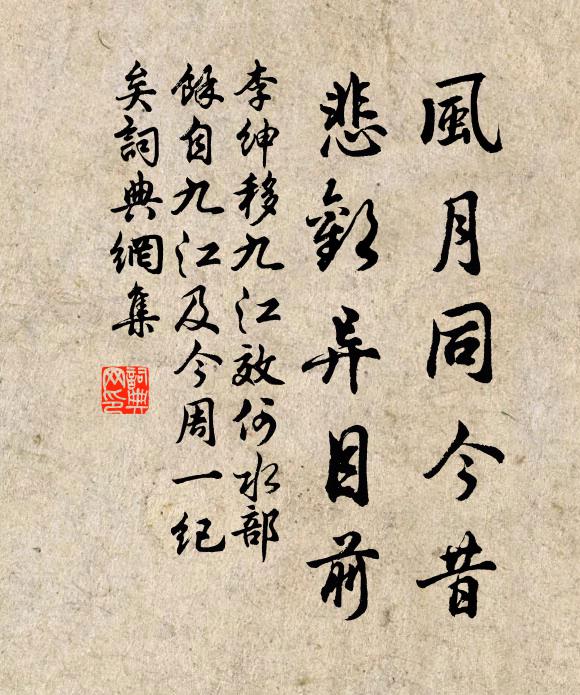 風月同今昔
悲歡異目前
李紳移九江效何水部
餘自九江及今周一紀
矣詞典網集
詞典網印